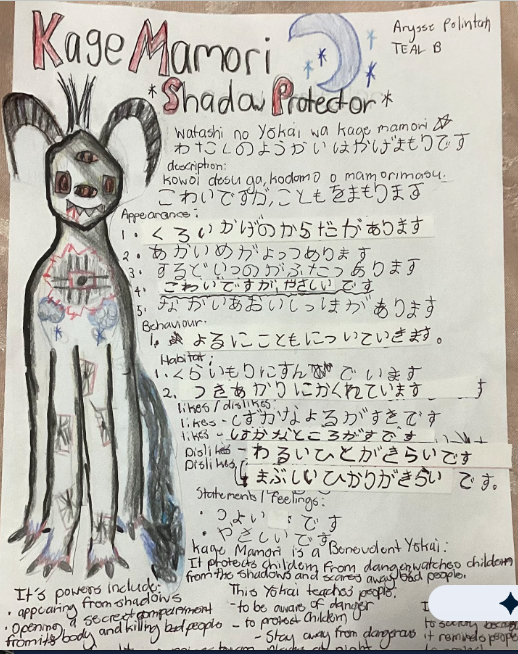 Kage Mamori
Arysse Polintan
TEAL B
*Shadow Protector*
Watashi no Yōkai wa kage mamori
わたしのようかいはかげまもりです
description:
kowai desu ga, kodomo o mamorimasu.
こわいですが、こどもをまもります
Appearance:
1. くろいかげのからだがあります
2. あかいめがよっつあります
3. するどいつのがふたつあります
4. こわいですが、やさしいです
5. ながいあおいしっぽがあります
Behaviour:
1. よるにこどもについていきます。
Habitat:
1. くらいもりにすんでいます
2. つきあかりにかくれています
likes/dislikes:
likes - しずかなよるがすきです
likes - しずかなところがすきです
Dislikes - わるいひとがきらいです
Dislikes, - まぶしいひかりがきらいです。
Statements/feelings:
・つよいです
・やさしいです。
Kage Mamori is a Benevolent Yōkai:
It protects children from danger, watches children
from the shadows and scares away bad people.
It's powers include:
• appearing from shadows
• Opening a secret compartment
from its body and killing bad people
This Yōkai teaches people:
- to be aware of danger
- to protect children
- Stay away from dangerous
to society because
it reminds people